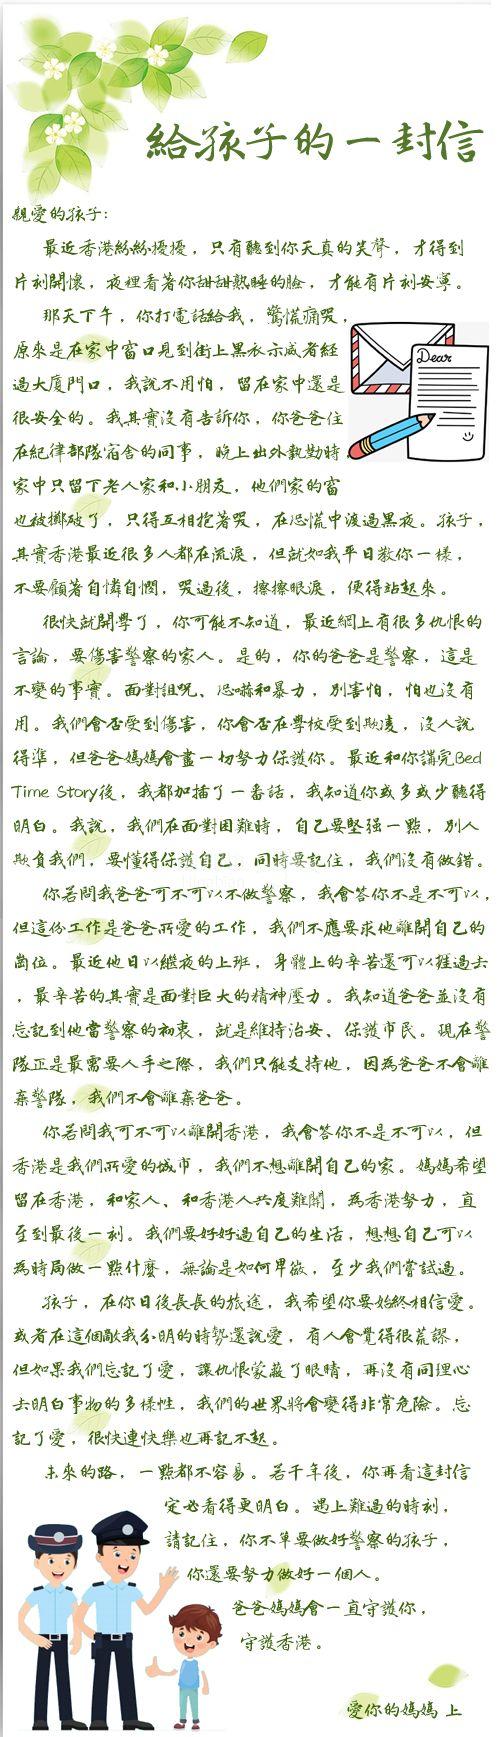 給孩子的一封信
親愛的孩子:
最近香港紛紛擾擾，只有聽到你天真的笑聲，才得到
片刻開懷，夜裡看著你甜甜熟睡的臉，才能有片刻安寧。
那天下午，你打電話給我，驚慌痛哭，
原來是在家中窗口見到街上黑衣示威者經
過大廈門口，我說不用怕，留在家中還是
很安全的。我其實沒有告訴你，你爸爸住
在紀律部隊宿舍的同事，晚上出外執勤時
家中只留下老人家和小朋友，他們家的窗
也被擲破了，只得互相抱著哭，在恐慌中渡過黑夜。孩子，
其實香港最近很多人都在流淚，但就如我平日教你一樣，
不要顧著自憐自憫，哭過後，擦擦眼淚，便得站起來。
很快就開學了，你可能不知道，最近網上有很多仇恨的
言論，要傷害警察的家人。是的，你的爸爸是警察，這是
不變的事實。面對詛咒、恐嚇和暴力，別害怕，怕也沒有
用。我們會否受到傷害，你會否在學校受到欺凌，沒人說
得準，但爸爸媽媽會盡一切努力保護你。最近和你講完Bed
Time Story後，我都加插了一番話，我知道你或多或少聽得
明白。我說，我們在面對困難時，自己要堅強一點，別人
欺負我們，要懂得保護自己，同時要記住，我們沒有做錯。
你若問我爸爸可不可以不做警察，我會答你不是不可以，
但這份工作是爸爸所愛的工作，我們不應要求他離開自己的
崗位。最近他日以繼夜的上班，身體上的辛苦還可以捱過去
，最辛苦的其實是面對巨大的精神壓力。我知道爸爸並沒有
忘記到他當警察的初衷，就是維持治安、保護市民。現在警
隊正是最需要人手之際，我們只能支持他，因為爸爸不會離
棄警隊，我們不會離棄爸爸。
你若問我可不可以離開香港，我會答你不是不可以，但
香港是我們所愛的城市，我們不想離開自己的家。媽媽希望
留在香港，和家人、和香港人共度難關，為香港努力，直
至到最後一刻。我們要好好過自己的生活，想想自己可以
為時局做一點什麼，無論是如何卑微，至少我們嘗試過。
孩子，在你日後長長的旅途，我希望你要始終相信愛。
或者在這個敵我分明的時勢還說愛，有人會覺得很荒謬，
但如果我們忘記了愛，讓仇恨蒙蔽了眼睛，再沒有同理心
去明白事物的多樣性，我們的世界將會變得非常危險。忘
記了愛，很快連快樂也再記不起。
未來的路，一點都不容易。若干年後，你再看這封信
定必看得更明白。遇上難過的時刻，
請記住，你不單要做好警察的孩子，
你還要努力做好一個人。
爸爸媽媽會一直守護你，
守護香港。
愛你的媽媽 上
Dear